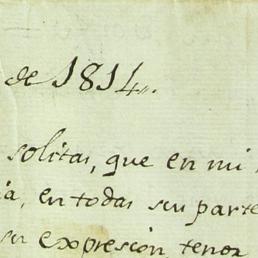 de 1814.
solitas, que en mi
ia, en todas su parte
su expresion tenor